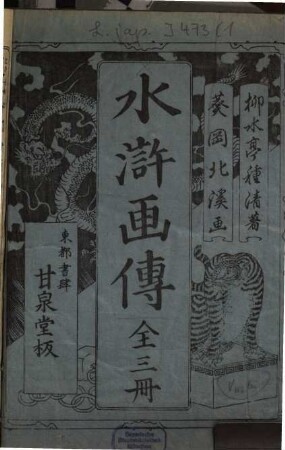 L. jap. J 473 (1
柳水亭種清著
葵岡北溪画
水滸画傳
全三冊
東都書肆
甘泉堂板
Bayerische
Staatsbibliothek
München